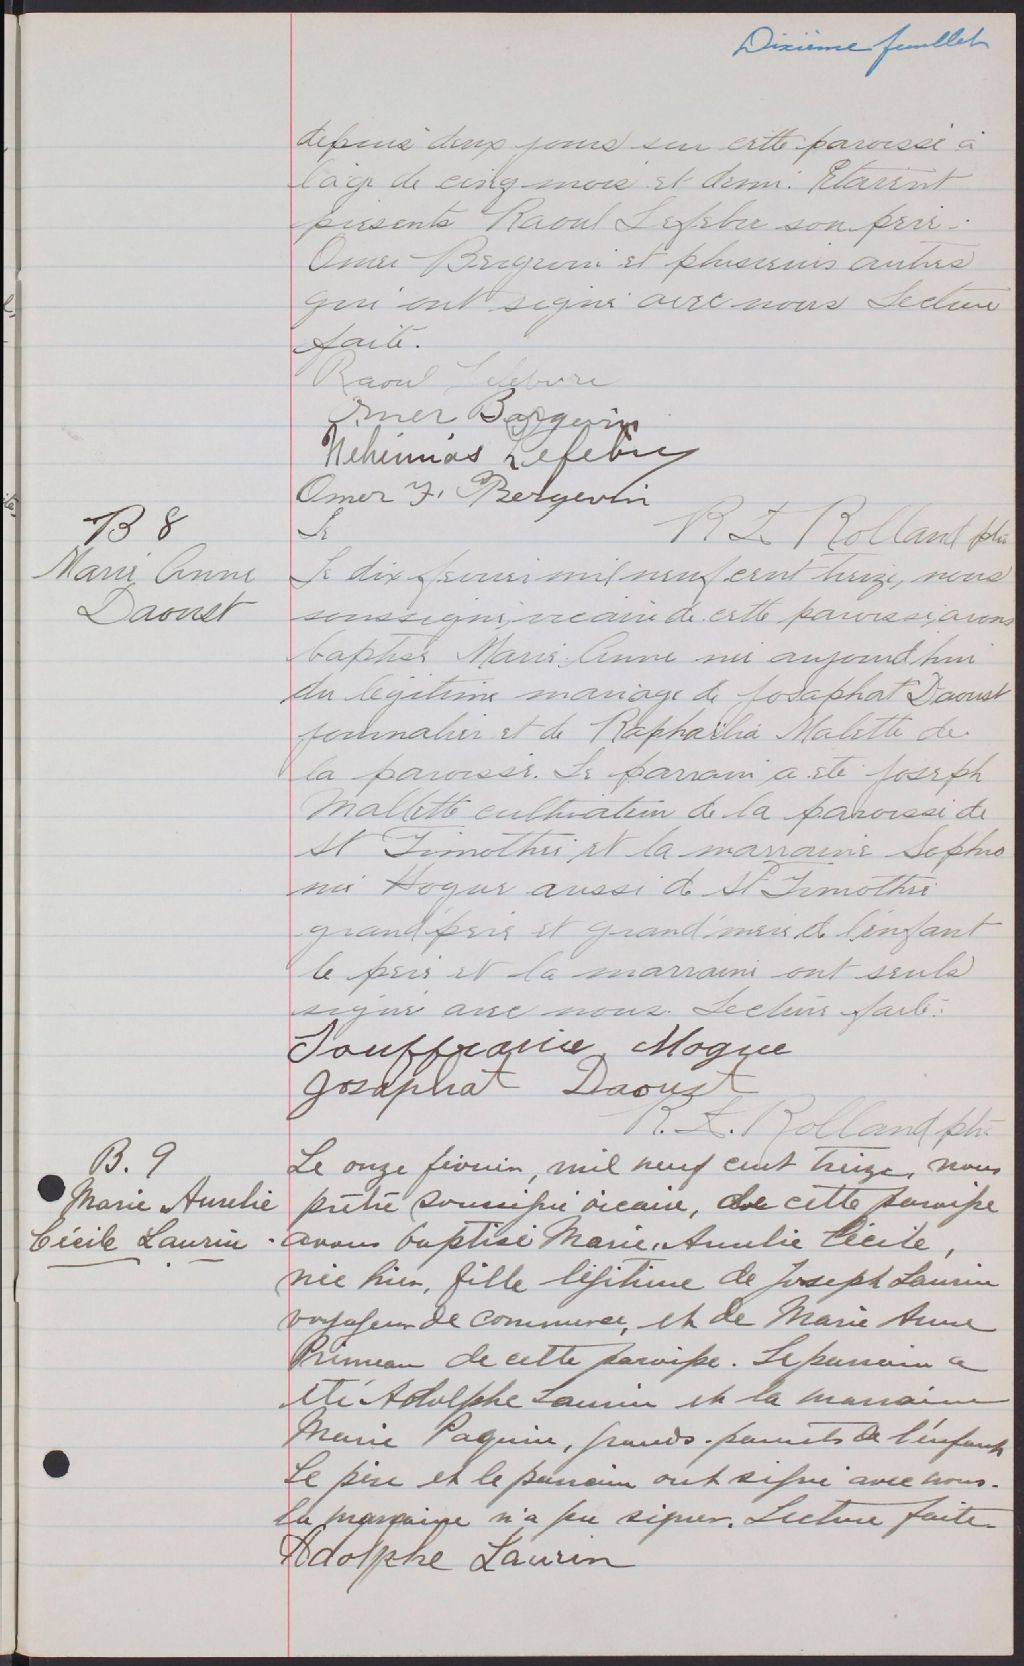 Dixième feuillet
depuis deux jours sur cette paroisse à
l'age de cinq mois et demi. Etaient
présents Raoul Lefebvre son père.
Omer Bergevin et plusieurs autres
qui ont signé avec nous Lecture
faite.
Raoul Lefebvre
Omer Bargevin
Nehémias Lefebvre
Omer F. Bergevin
Le
R Z Rolland ptre
B 8
Marie Anne
Daoust
Le dix fevrier mil neuf cent treize, nous
soussigné vicaire de cette paroisse avons
baptisé Marie Anne née aujourd'hui
du légitime mariage de Josaphat Daoust
journalier et de Raphaëlia Malette de
la paroisse. Le parrain a été Joseph
Mallette cultivateur de la paroisse de
St Timothée et la marraine Sophro
nie Hogue aussi de St Timothée
grand'père et grand'mère de l'enfant
le père et la marraine ont seuls
signé avec nous. Lecture faite.
Hogue
Josaphat Daoust
R. Z. Rolland ptre
B. 9
Marie Aurelie
Cécile Laurin
Le onze février, mil neuf cent treize, nous
prêtre soussigné vicaire, de cette paroisse
avons baptisé Marie, Aurelie Cécile,
née hier, fille légitime de Joseph Laurin
voyageur de commerce, et de Marie Anne
Primeau de cette paroisse. Le parrain a
été Adolphe Laurin et la marraine
Marie Paquin, grands-parents de l'enfant
Le père et le parrain ont signé avec nous.
la marraine n'a pu signer. Lecture faite.
Adolphe Laurin